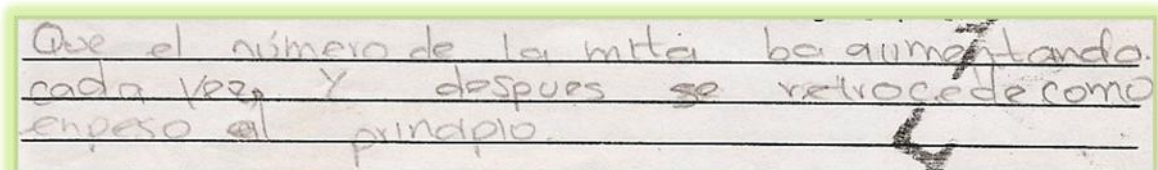 Que el número de la mita ba aumentando.
cada vez, Y despues se retrocede como
enpeso al principio.